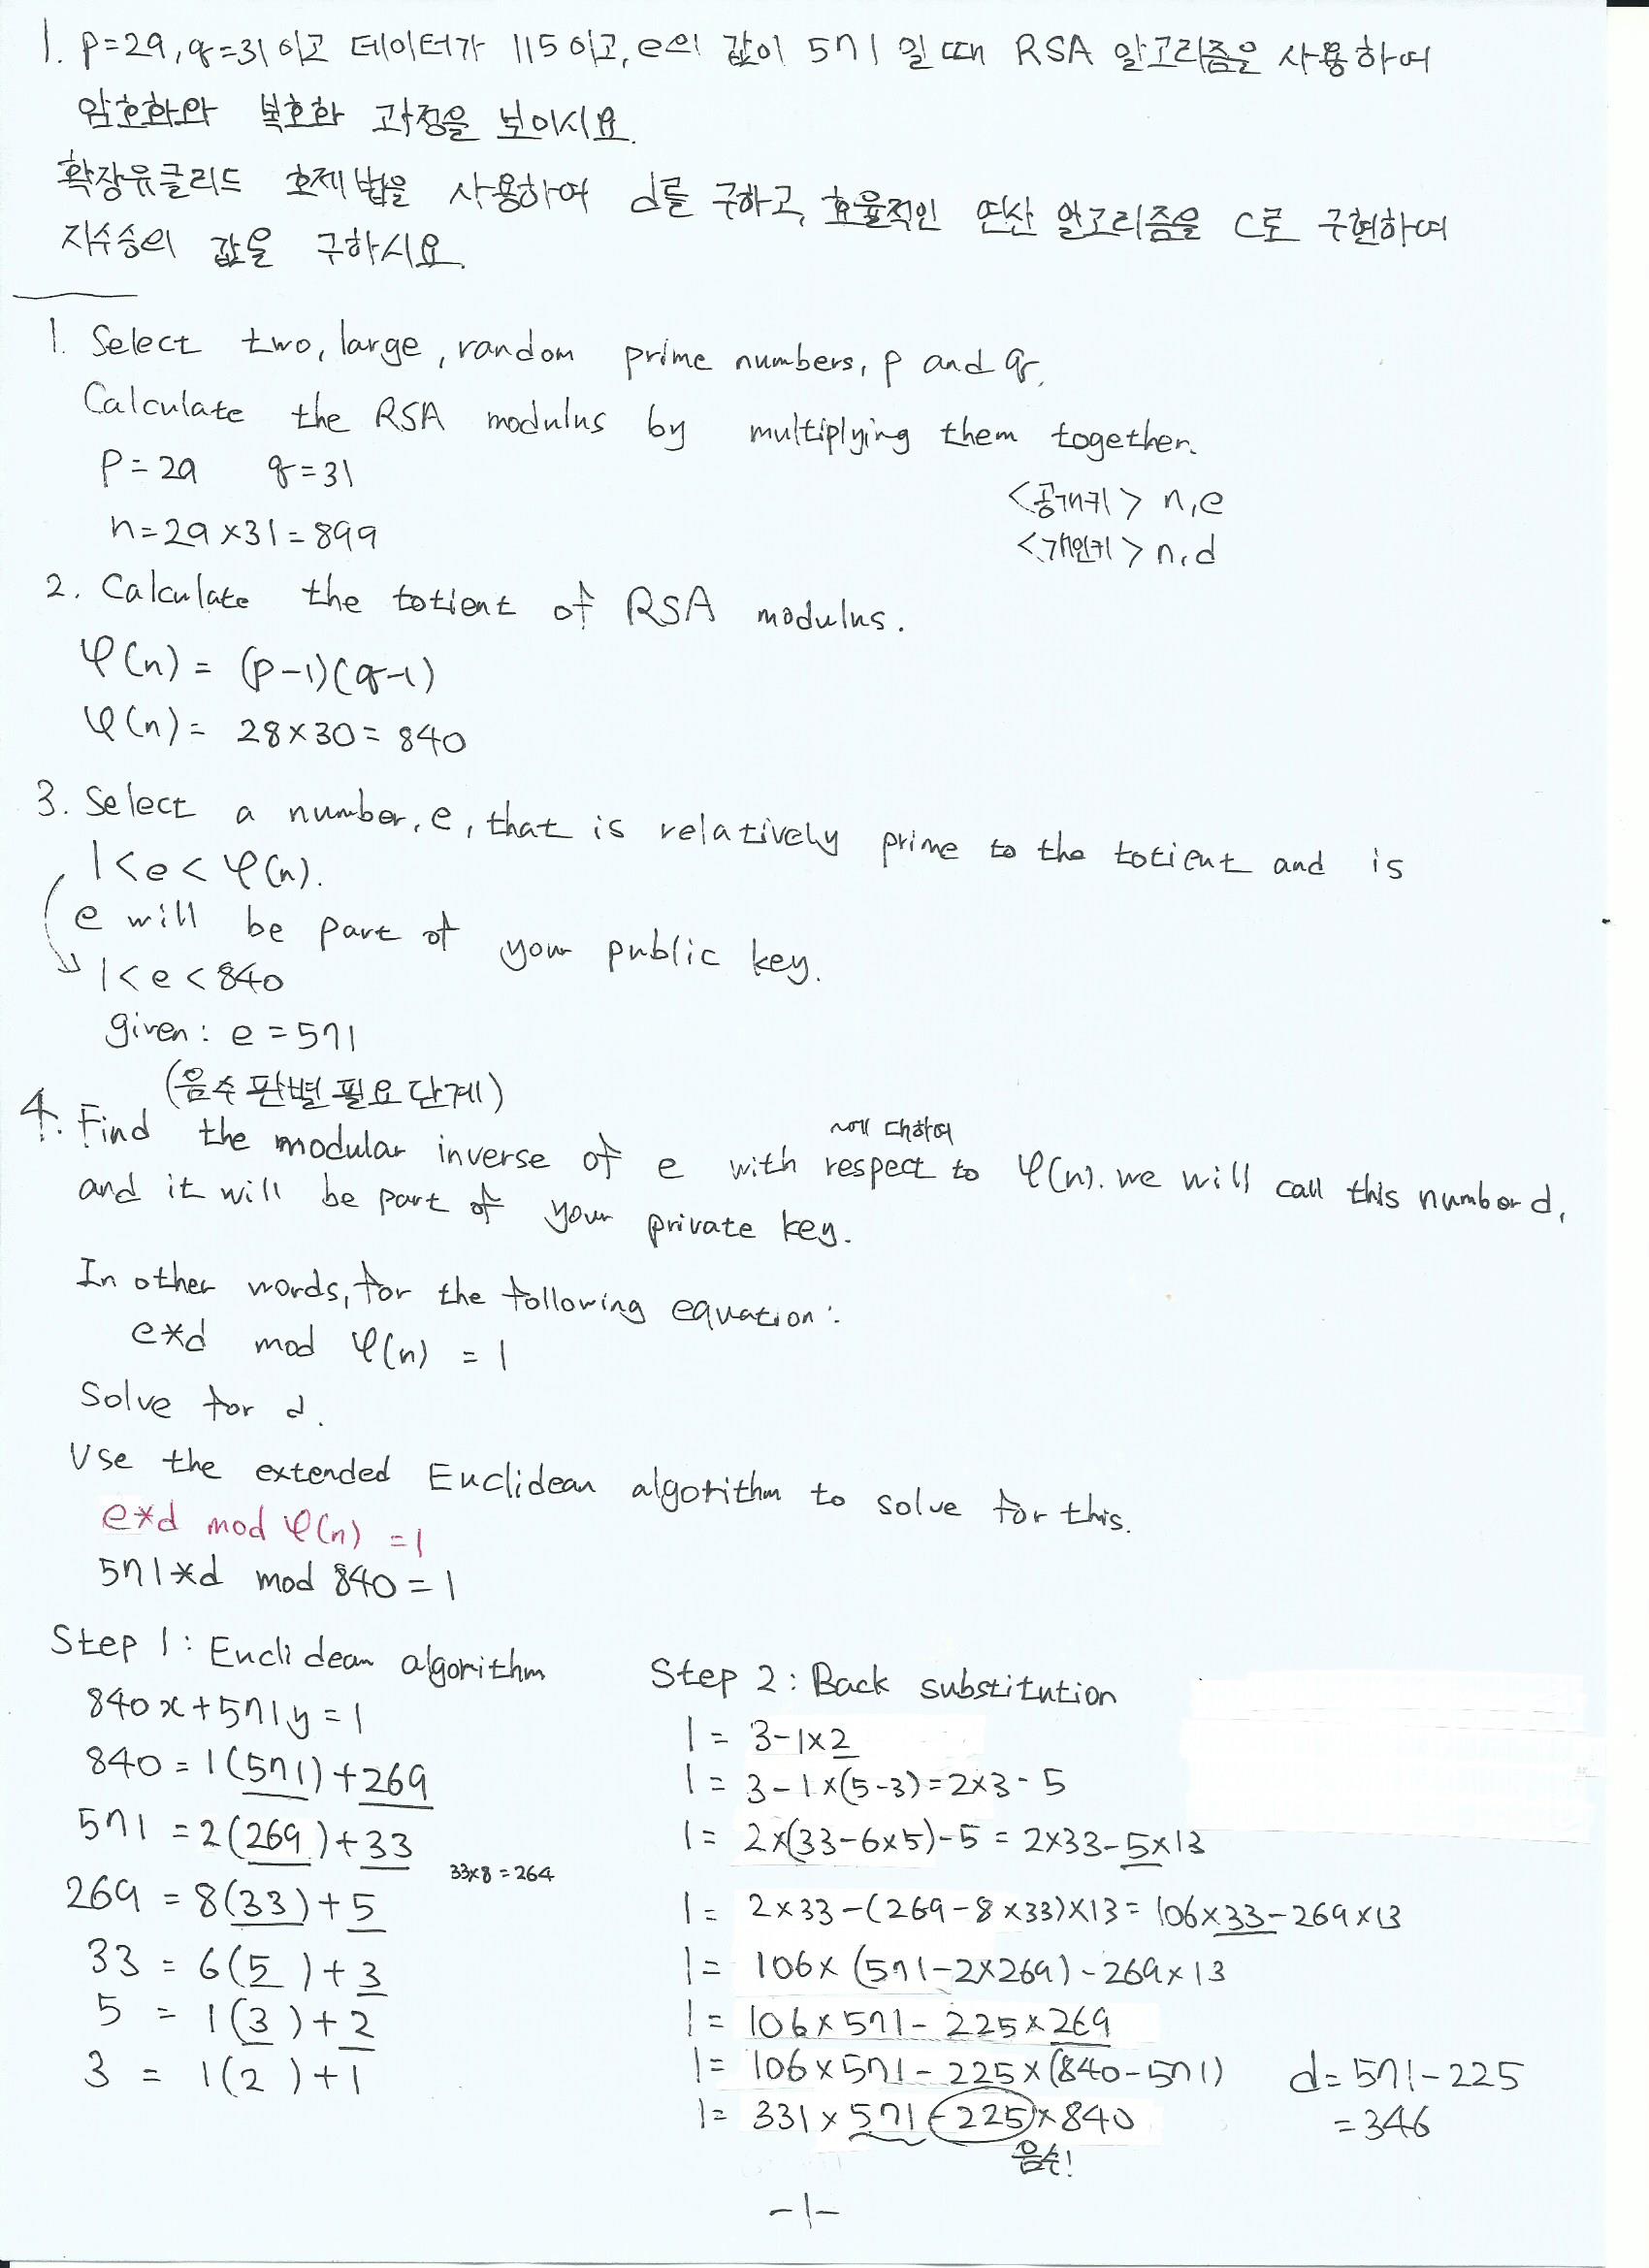 1. p=29, q=31이고 데이터가 115이고, e의 값이 571일 때 RSA 알고리즘을 사용하여
암호화와 복호화 과정을 보이시요.
확장유클리드 호제법을 사용하여 d를 구하고, 효율적인 연산 알고리즘을 C로 구현하여
지수승의 값을 구하시요.
1. Select two, large, random prime numbers, p and q.
Calculate the RSA modulus by multiplying them together.
P=29 q=31
n=29×31=899
<공개키> n,e
<개인키> n,d
2. Calculate the totient of RSA modulus.
φ(n) = (p-1)(q-1)
φ(n) = 28×30 = 840
3. Select a number, e, that is relatively prime to the totient and is
1<e<φ(n).
e will be part of your public key.
1<e<840
given: e=571
(음수 판별 필요 단계)
4. Find the modular inverse of e with respect to φ(n). we will call this number d,
~에 대하여
and it will be part of your private key.
In other words, for the following equation:
e*d mod φ(n) = 1
Solve for d.
Use the extended Euclidean algorithm to solve for this.
e*d mod φ(n) = 1
571*d mod 840 = 1
Step 1: Euclidean algorithm
840x+571y=1
840 = 1(571)+269
571 = 2(269)+33
33×8=264
269 = 8(33)+5
33 = 6(5)+3
5 = 1(3)+2
3 = 1(2)+1
Step 2: Back substitution
1 = 3-1×2
1 = 3-1×(5-3)=2×3-5
1 = 2×(33-6×5)-5 = 2×33-5×13
1 = 2×33-(269-8×33)×13 = 106×33-269×13
1 = 106×(571-2×269)-269×13
1 = 106×571-225×269
1 = 106×571-225×(840-571)
1 = 331×571-225×840
음수!
d=571-225
=346
-1-